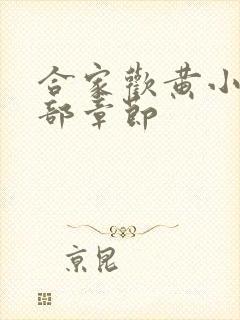 合家歡黄小
部章節
京昆